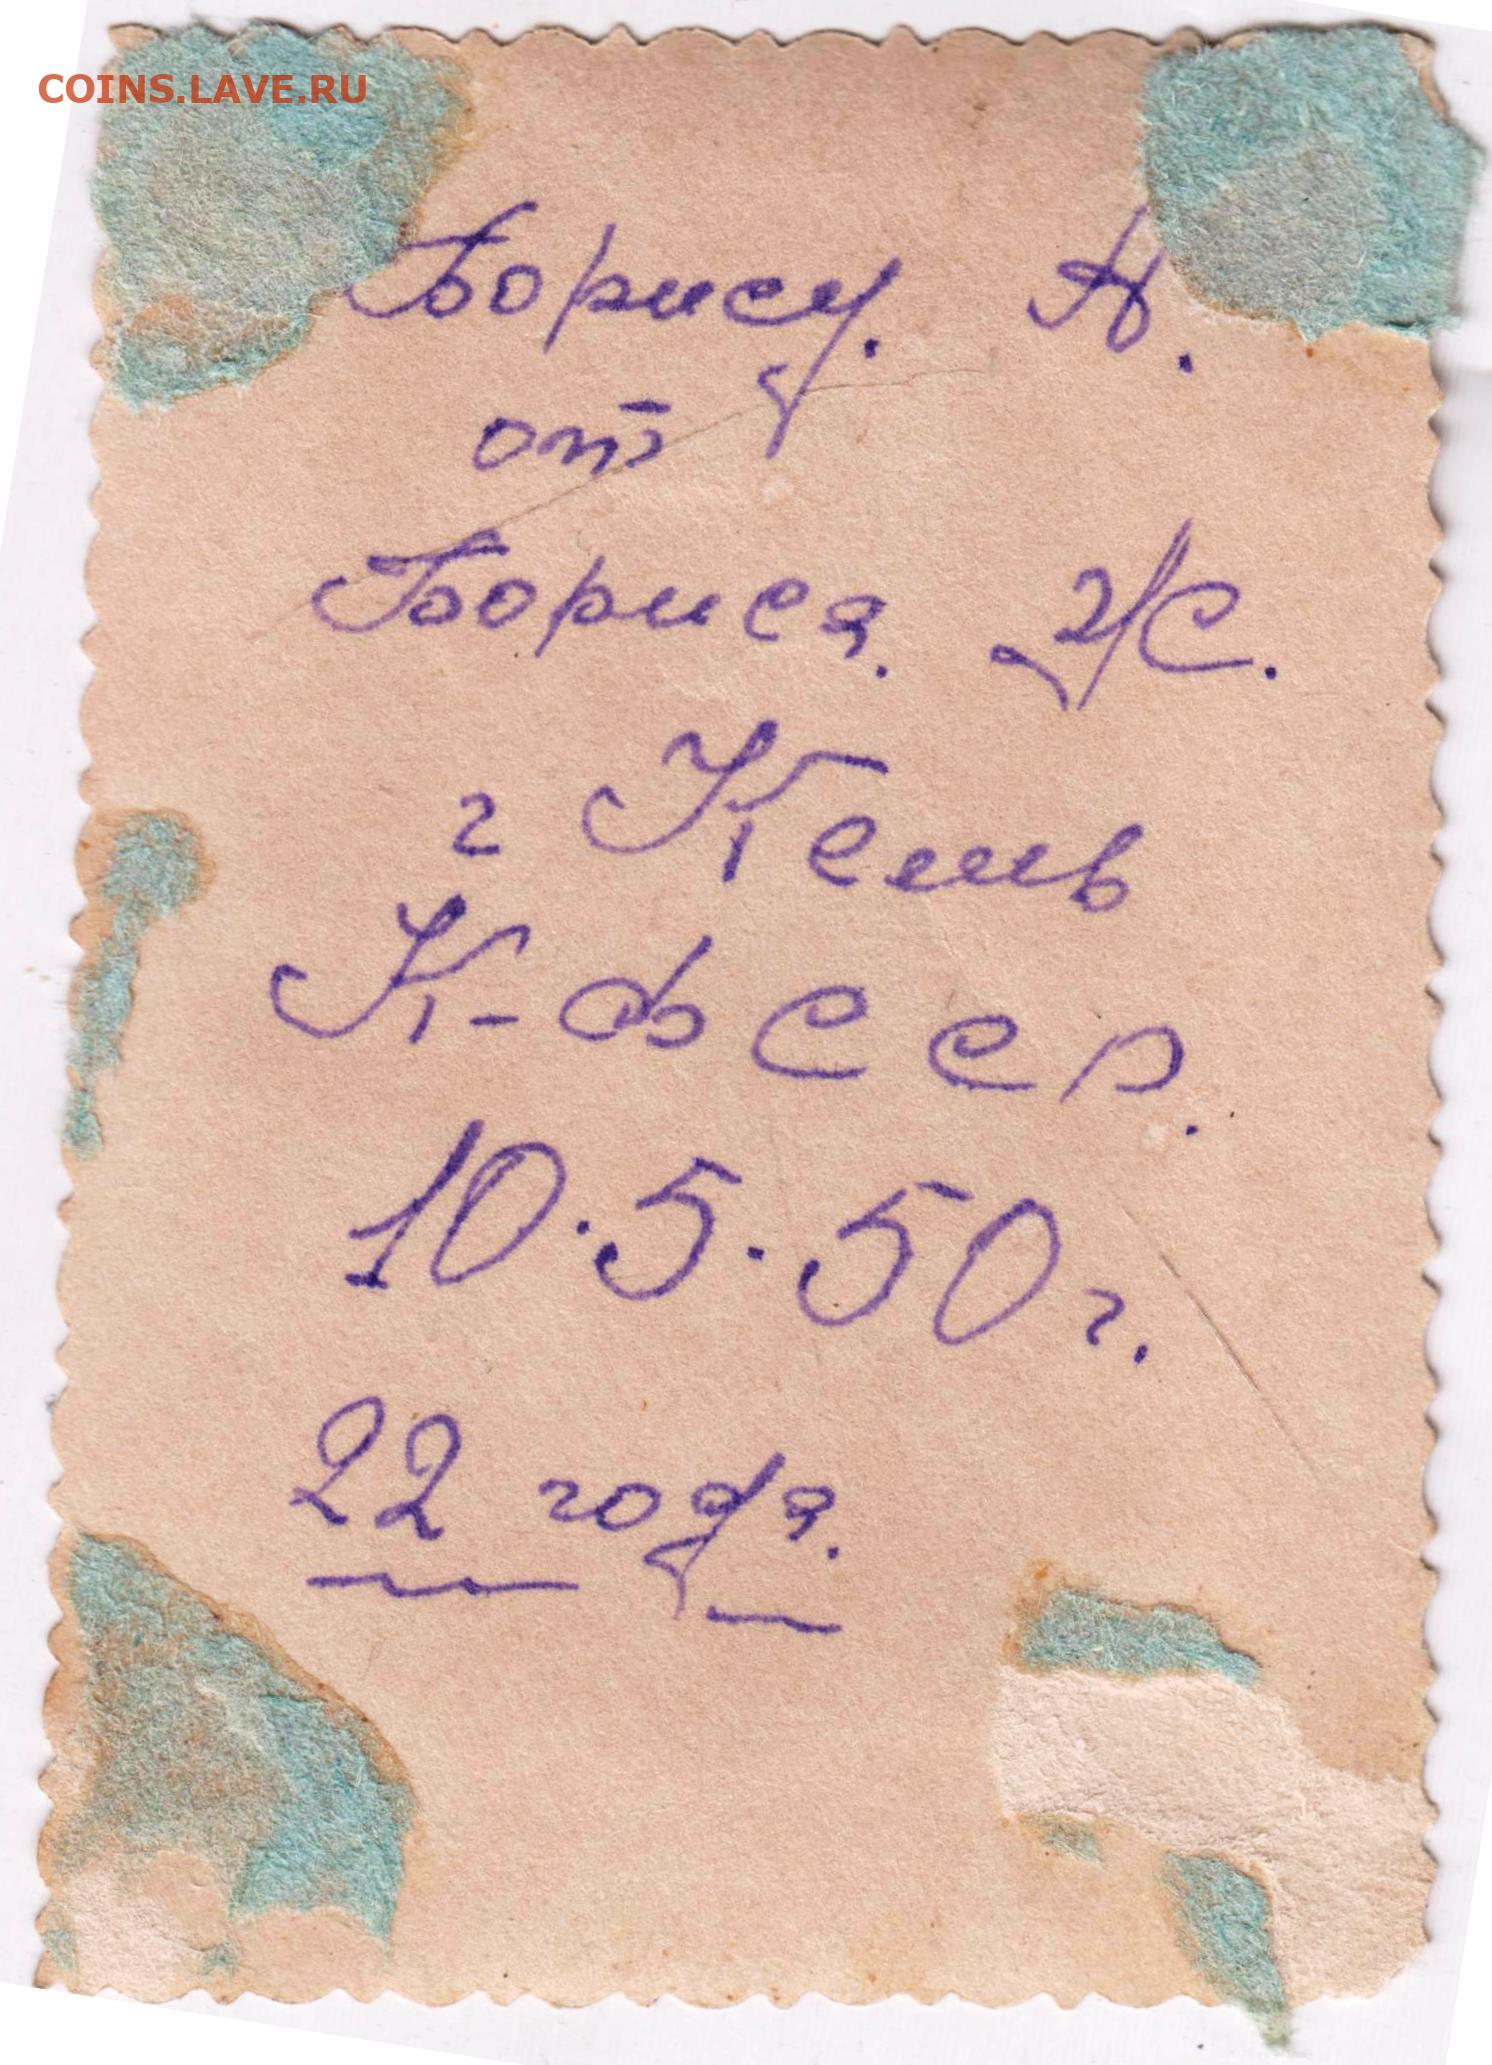 COINS.LAVE.RU
Борису. А.
от
Бориса.
г Кемь
К-Ф ССР.
10.5.50 г.
22 года.